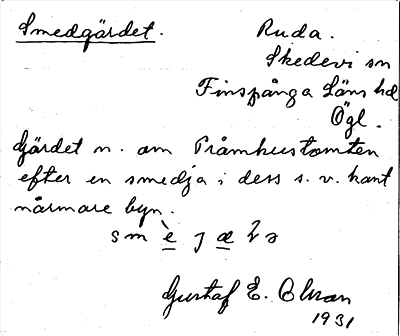 Smedgärdet.
Ruda.
Skedevi sn
Finspånga Läns hd
Ögl.
Gärdet n. om Pråmhustomten
efter en smedja i dess s. v. kant
närmare byn.
Gustaf E. Olsson
1931